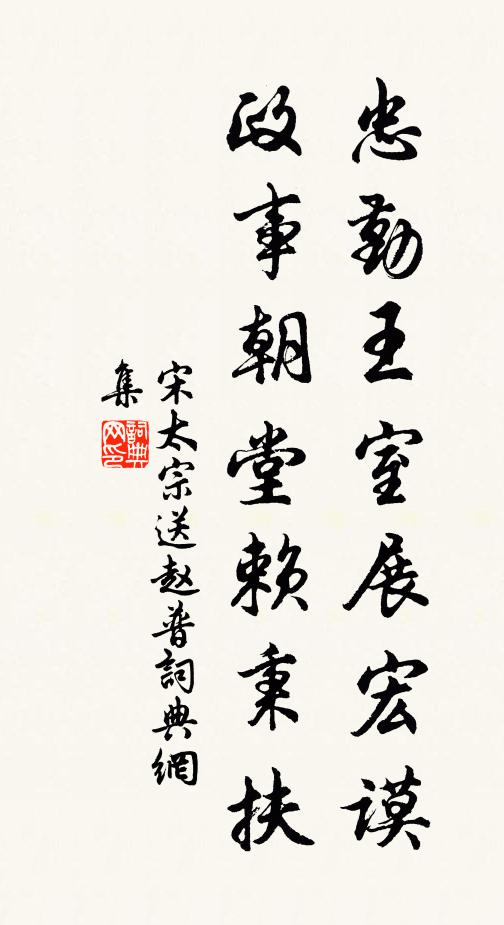 忠勤王室展宏谟
政事朝堂赖秉扶
宋太宗送赵普詞典網
集
詞典网印